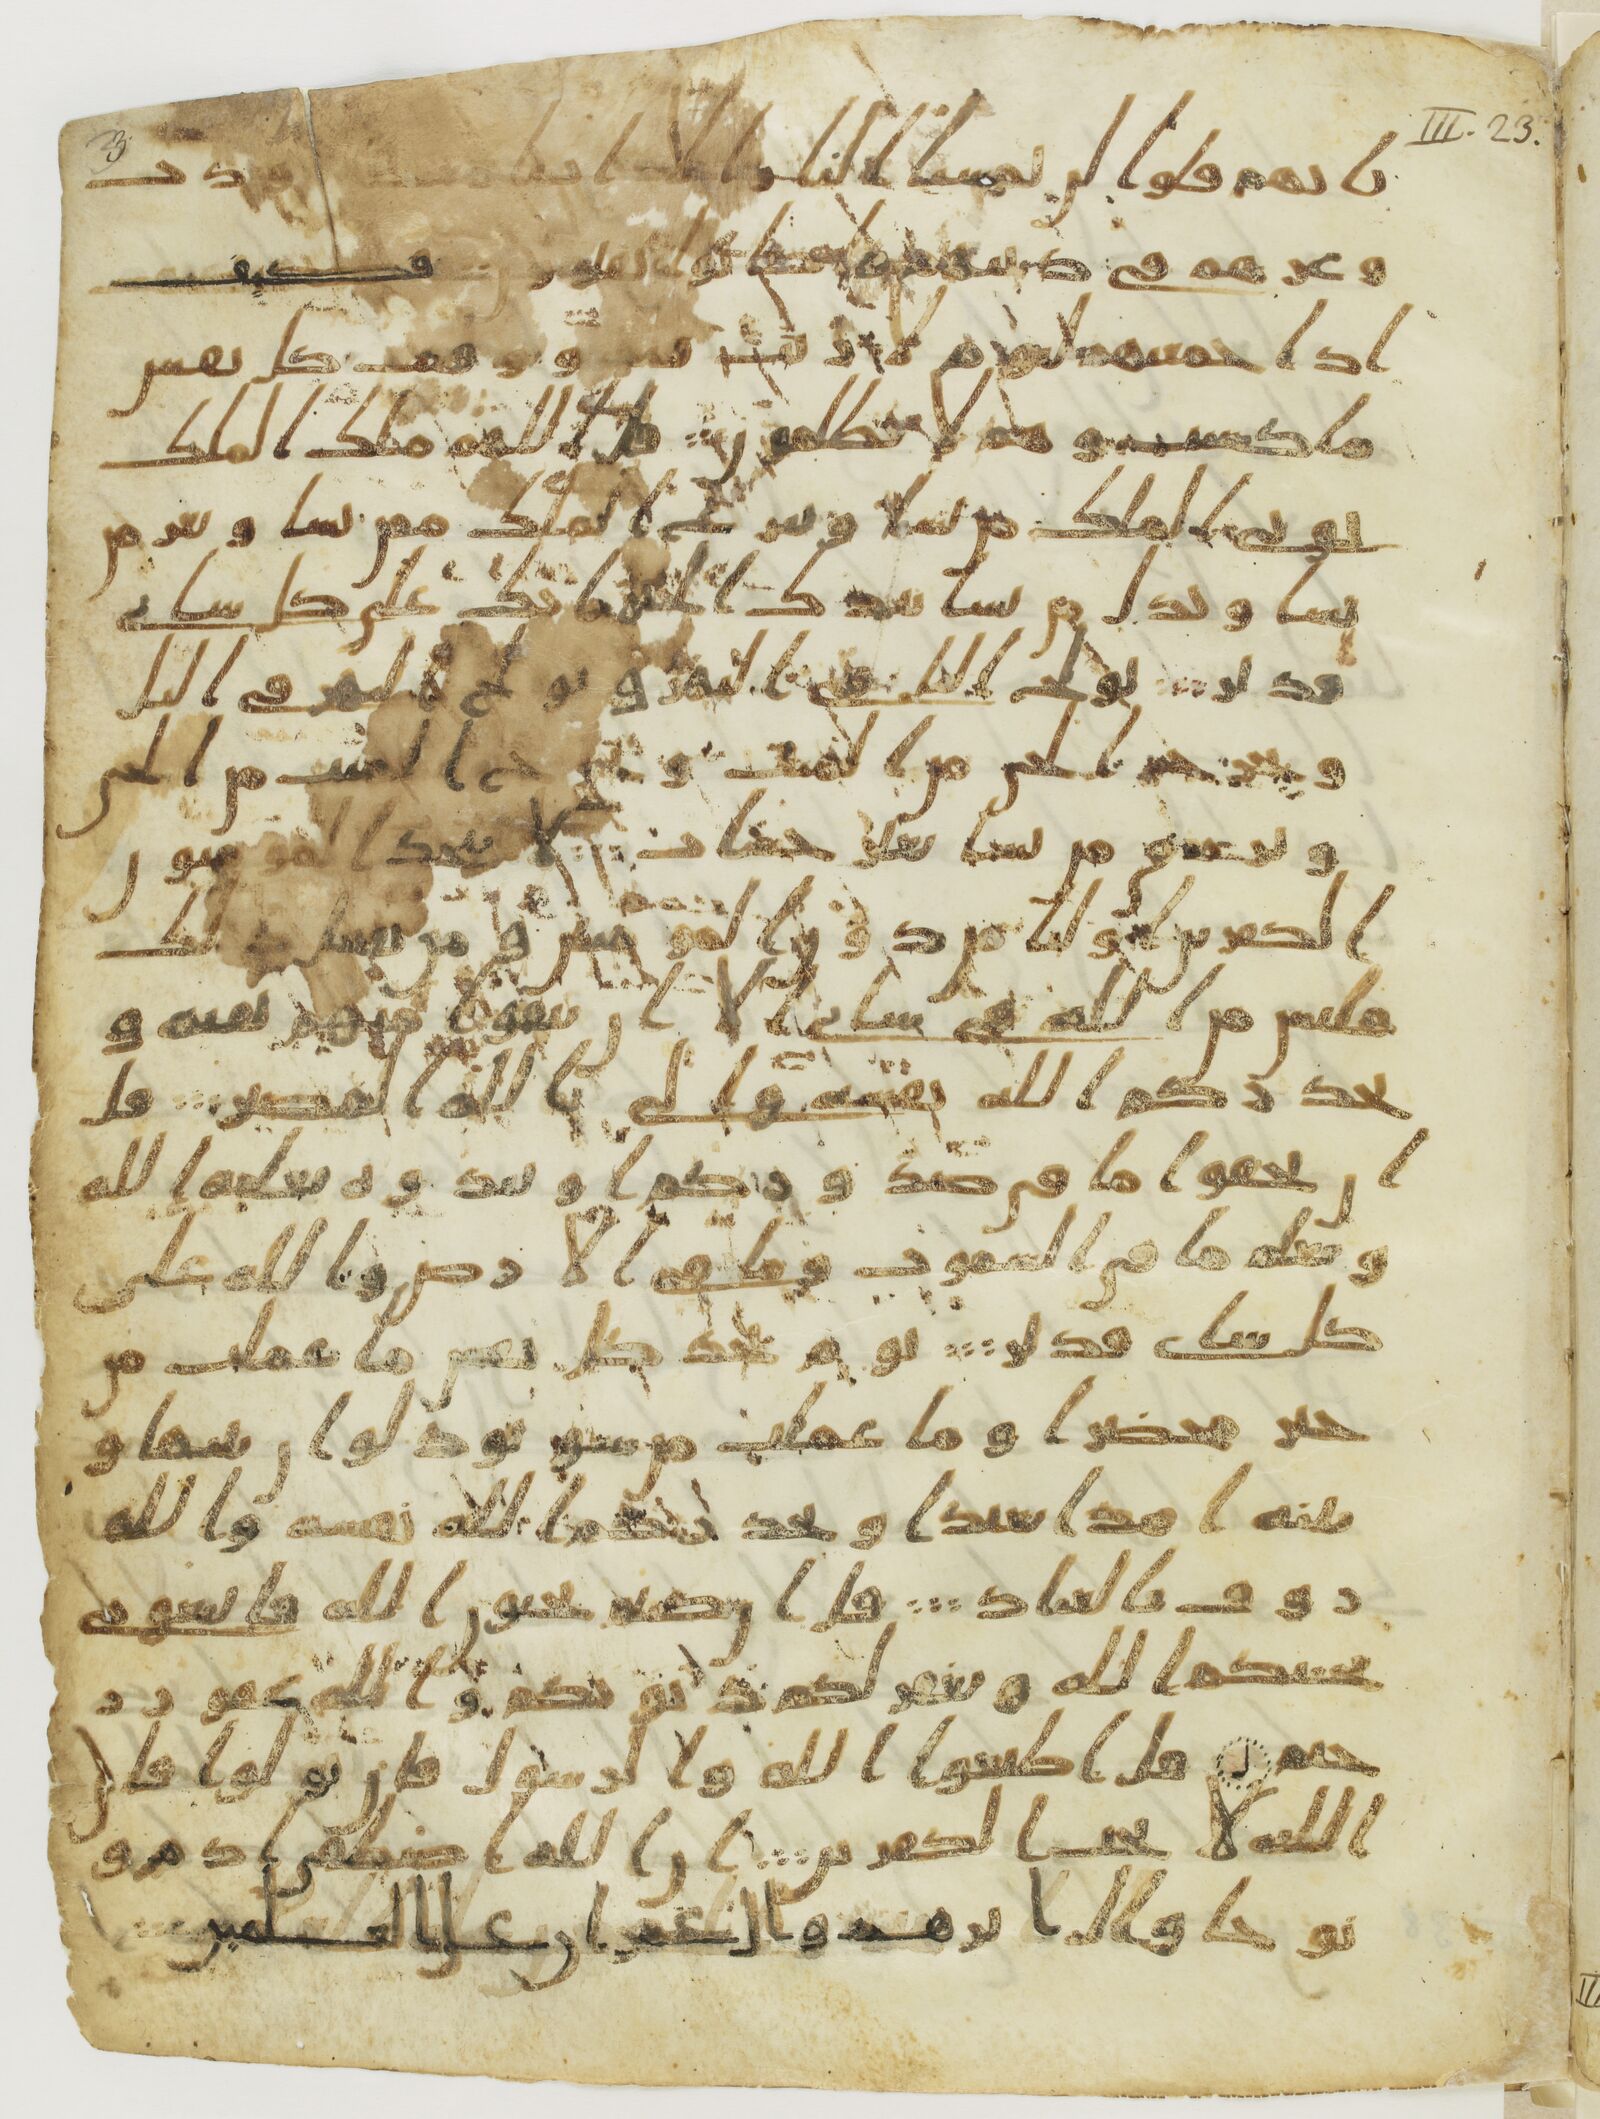 III. 23.
با نهم قلوا لن تمسنا النا ر الا ا يا ما معد و د ت
و غر هم فى د ينهم ما كا نو ا يفتر و ن فكيف
ا ذ ا جمعنهم ليو م لا ر يب فيه و و فيت كل نفس
ما كسبت و هم لا يظلمو ن قل ا للهم ملك ا لملك
تو تى ا لملك من تشا و تنز ع ا لملك ممن تشا و تعز من
تشا و تذ ل من تشا بيد ك ا لخير ا نك على كل شاى
قد ير تو لج ا ليل فى ا لنهر و تو لج ا لنهر فى ا ليل
و تخر ج ا لحى من ا لميت و تخر ج ا لميت من ا لحى
و تر ز ق من تشا بغير حسا ب لا يتخذ ا لمو منو ن
ا لكفر ين ا و ليا من د و ن ا لمو منين و من يفعل ذ لك
فليس من ا لله فى شاى ا لا ا ن تتقو ا منهم تقيه و
يحذ ر كم ا لله نفسه و ا لى ا لله ا لمصير قل
ا ن تخفو ا ما فى صد و ر كم ا و تبد و ه يعلمه ا لله
و يعلم ما فى ا لسمو ت و ما فى ا لا ر ض و ا لله على
كل شاى قد ير يو م تجد كل نفس ما عملت من
خير محضر ا و ما عملت من سو تو د لو ا ن بينها و
بينه ا مد ا بعيد ا و يحذ ر كم ا لله نفسه و ا لله
ر و ف با لعبا د قل ا ن كنتم تحبو ن ا لله فا تبعو نى
يحببكم ا لله و يغفر لكم ذ نو بكم و ا لله غفو ر ر
حيم قل ا طيعو ا ا لله و ا لر سو ل فا ن تو لو ا فا ن
ا لله لا يحب ا لكفر ين ا ن ا لله ا صطفى ا د م و
نو حا و ا ل ا بر هيم و ا ل عمر ا ن على ا لعلمين